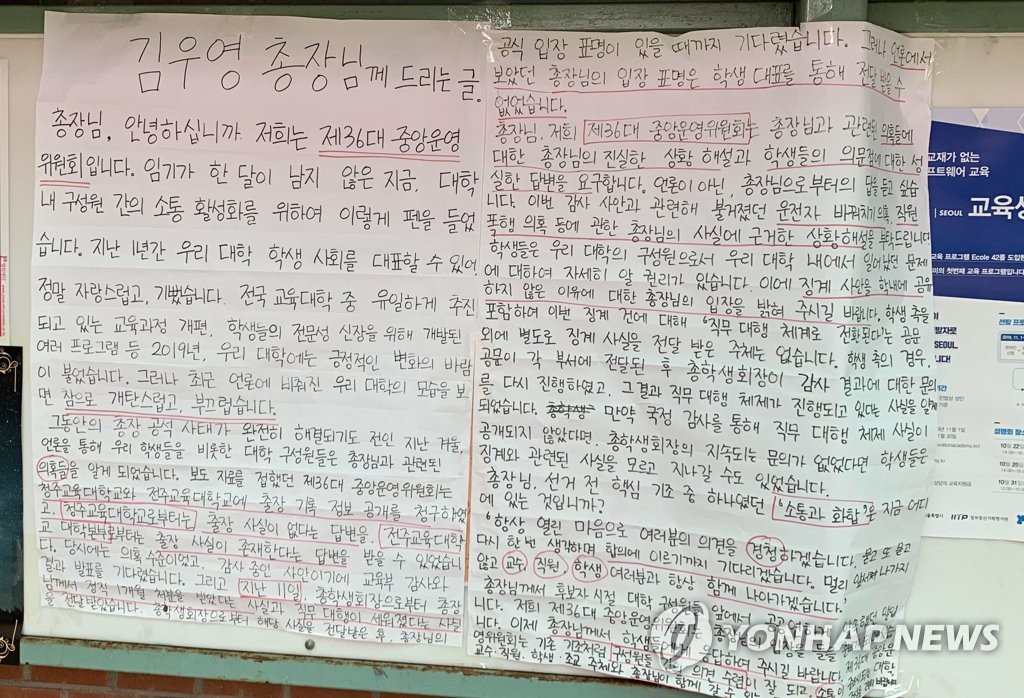 김우영 총장님께 드리는 글.
총장님, 안녕하십니까. 저희는 제36대 중앙운영
위원회입니다. 임기가 한 달이 남지 않은 지금, 대학
내 구성원 간의 소통 활성화를 위하여 이렇게 펜을 들었
습니다. 지난 1년간 우리 대학 학생 사회를 대표할 수 있어,
정말 자랑스럽고, 기뻤습니다. 전국 교육대학 중 유일하게 추진
되고 있는 교육과정 개편, 학생들의 전문성 신장을 위해 개발된
여러 프로그램 등 2019년, 우리 대학에는 긍정적인 변화의 바람
이 불었습니다. 그러나 최근 언론에 비춰진 우리 대학의 모습을 보
면 참으로 개탄스럽고, 부끄럽습니다.
그동안의 총장 공석 사태가 완전히 해결되기도 전인 지난 겨울,
언론을 통해 우리 학생들을 비롯한 대학 구성원들은 총장님과 관련된
의혹들을 알게 되었습니다. 보도 자료를 접했던 제36대 중앙운영위원회는
청주교육대학교와 전주교육대학교에 출장 기록 정보 공개를 청구하였
고, 청주교육대학교로부터는 출장 사실이 없다는 답변을, 전주교육대학
교 대학본부로부터는 출장 사실이 존재한다는 답변을 받을 수 있었습니
다. 당시에는 의혹 수준이었고, 감사 중인 사안이기에 교육부 감사와
결과 발표를 기다렸습니다. 그리고 지난 11일, 총학생회장으로부터 총장
님께서 정직 1개월 처분을 받았다는 사실과 직무 대행이 세워졌다는 사실
을 전달받았습니다. 총학생회장으로부터 해당 사실을 전달받은 후, 총장님의
공식 입장 표명이 있을 때까지 기다렸습니다. 그러나 언론에서
보았던 총장님의 입장 표명은 학생 대표를 통해 전달 받을 수
없었습니다.
총장님, 저희 제36대 중앙운영위원회는 총장님과 관련된 의혹들에
대한 총장님의 진실한 상황 해설과 학생들의 의문점에 대한 성
실한 답변을 요구합니다. 언론이 아닌, 총장님으로부터의 답을 듣고 싶습
니다. 이번 감사 사안과 관련해 불거졌던 운전자 바꿔치기 의혹, 직원
폭행 의혹 등에 관한 총장님의 사실에 근거한 상황 해설을 부탁드립니다.
학생들은 우리 대학의 구성원으로서 우리 대학 내에서 일어났던 문제
에 대하여 자세히 알 권리가 있습니다. 이에 징계 사안을 학내에 공유
하지 않은 이유에 대한 총장님의 입장을 밝혀 주시길 바랍니다. 학생 측을
포함하여 이번 징계 건에 대해 "직무 대행 체계로 전환된다"는 공문
외에 별도로 징계 사실을 전달 받은 주체는 없습니다. 학생 측의 경우,
공문이 각 부서에 전달된 후 총학생회장이 감사 결과에 대한 문의
를 다시 진행하였고, 그 결과 직무 대행 체제가 진행되고 있다는 사실을 알게
되었습니다. 만약 국정 감사를 통해 직무 대행 체제 사실이
공개되지 않았다면, 총학생회장의 지속되는 문의가 없었다면 학생들은
징계와 관련된 사실을 모르고 지나갈 수도 있었습니다.
총장님, 선거 전 핵심 기조 중 하나였던 '소통과 화합'은 지금 어디
에 있는 것입니까?
"항상 열린 마음으로 여러분의 의견을 경청하겠습니다. 묻고 또 묻고
다시 한 번 생각하며 합의에 이르기까지 기다리겠습니다. 멀리 앞서 나가지
않고 교수, 직원, 학생 여러분과 항상 함께 나아가겠습니다."
총장님께서 후보자 시절 대학 구성원들 앞에서
니다. 저희 제36대 중앙운영위원
니다. 이제 총장님께서 학생들 응답하여 주시길 바랍니다.
영위원회는 기존 기조처럼 구성원들 의견 수렴이 잘 되고,
교수, 직원, 학생, 조교 주체와 총장님이 함께 갈 수 있
YONHAP NEWS
교재가 없는
프트웨어 교육
SEOUL 교육생
교육 프로그램 Ecole 42를 도입한
발자로
SEOUL
IITP